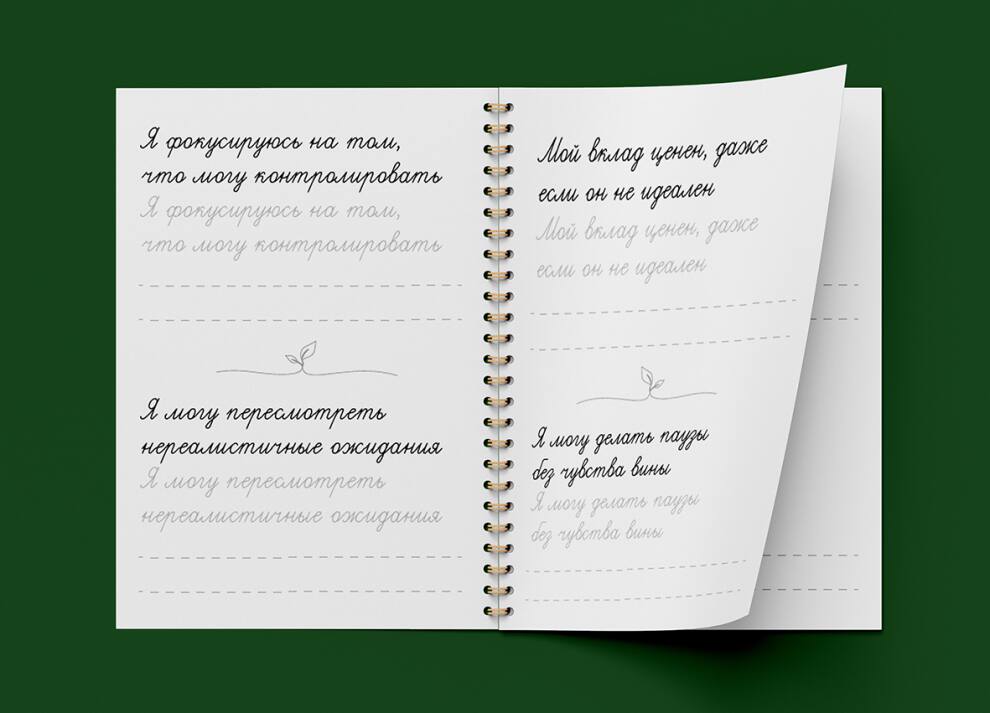 Я фокусируюсь на том,
что могу контролировать
Я фокусируюсь на том,
что могу контролировать
Я могу пересмотреть
нереалистичные ожидания
Я могу пересмотреть
нереалистичные ожидания
Мой вклад ценен, даже
если он не идеален
Мой вклад ценен, даже
если он не идеален
Я могу делать паузы
без чувства вины
Я могу делать паузы
без чувства вины